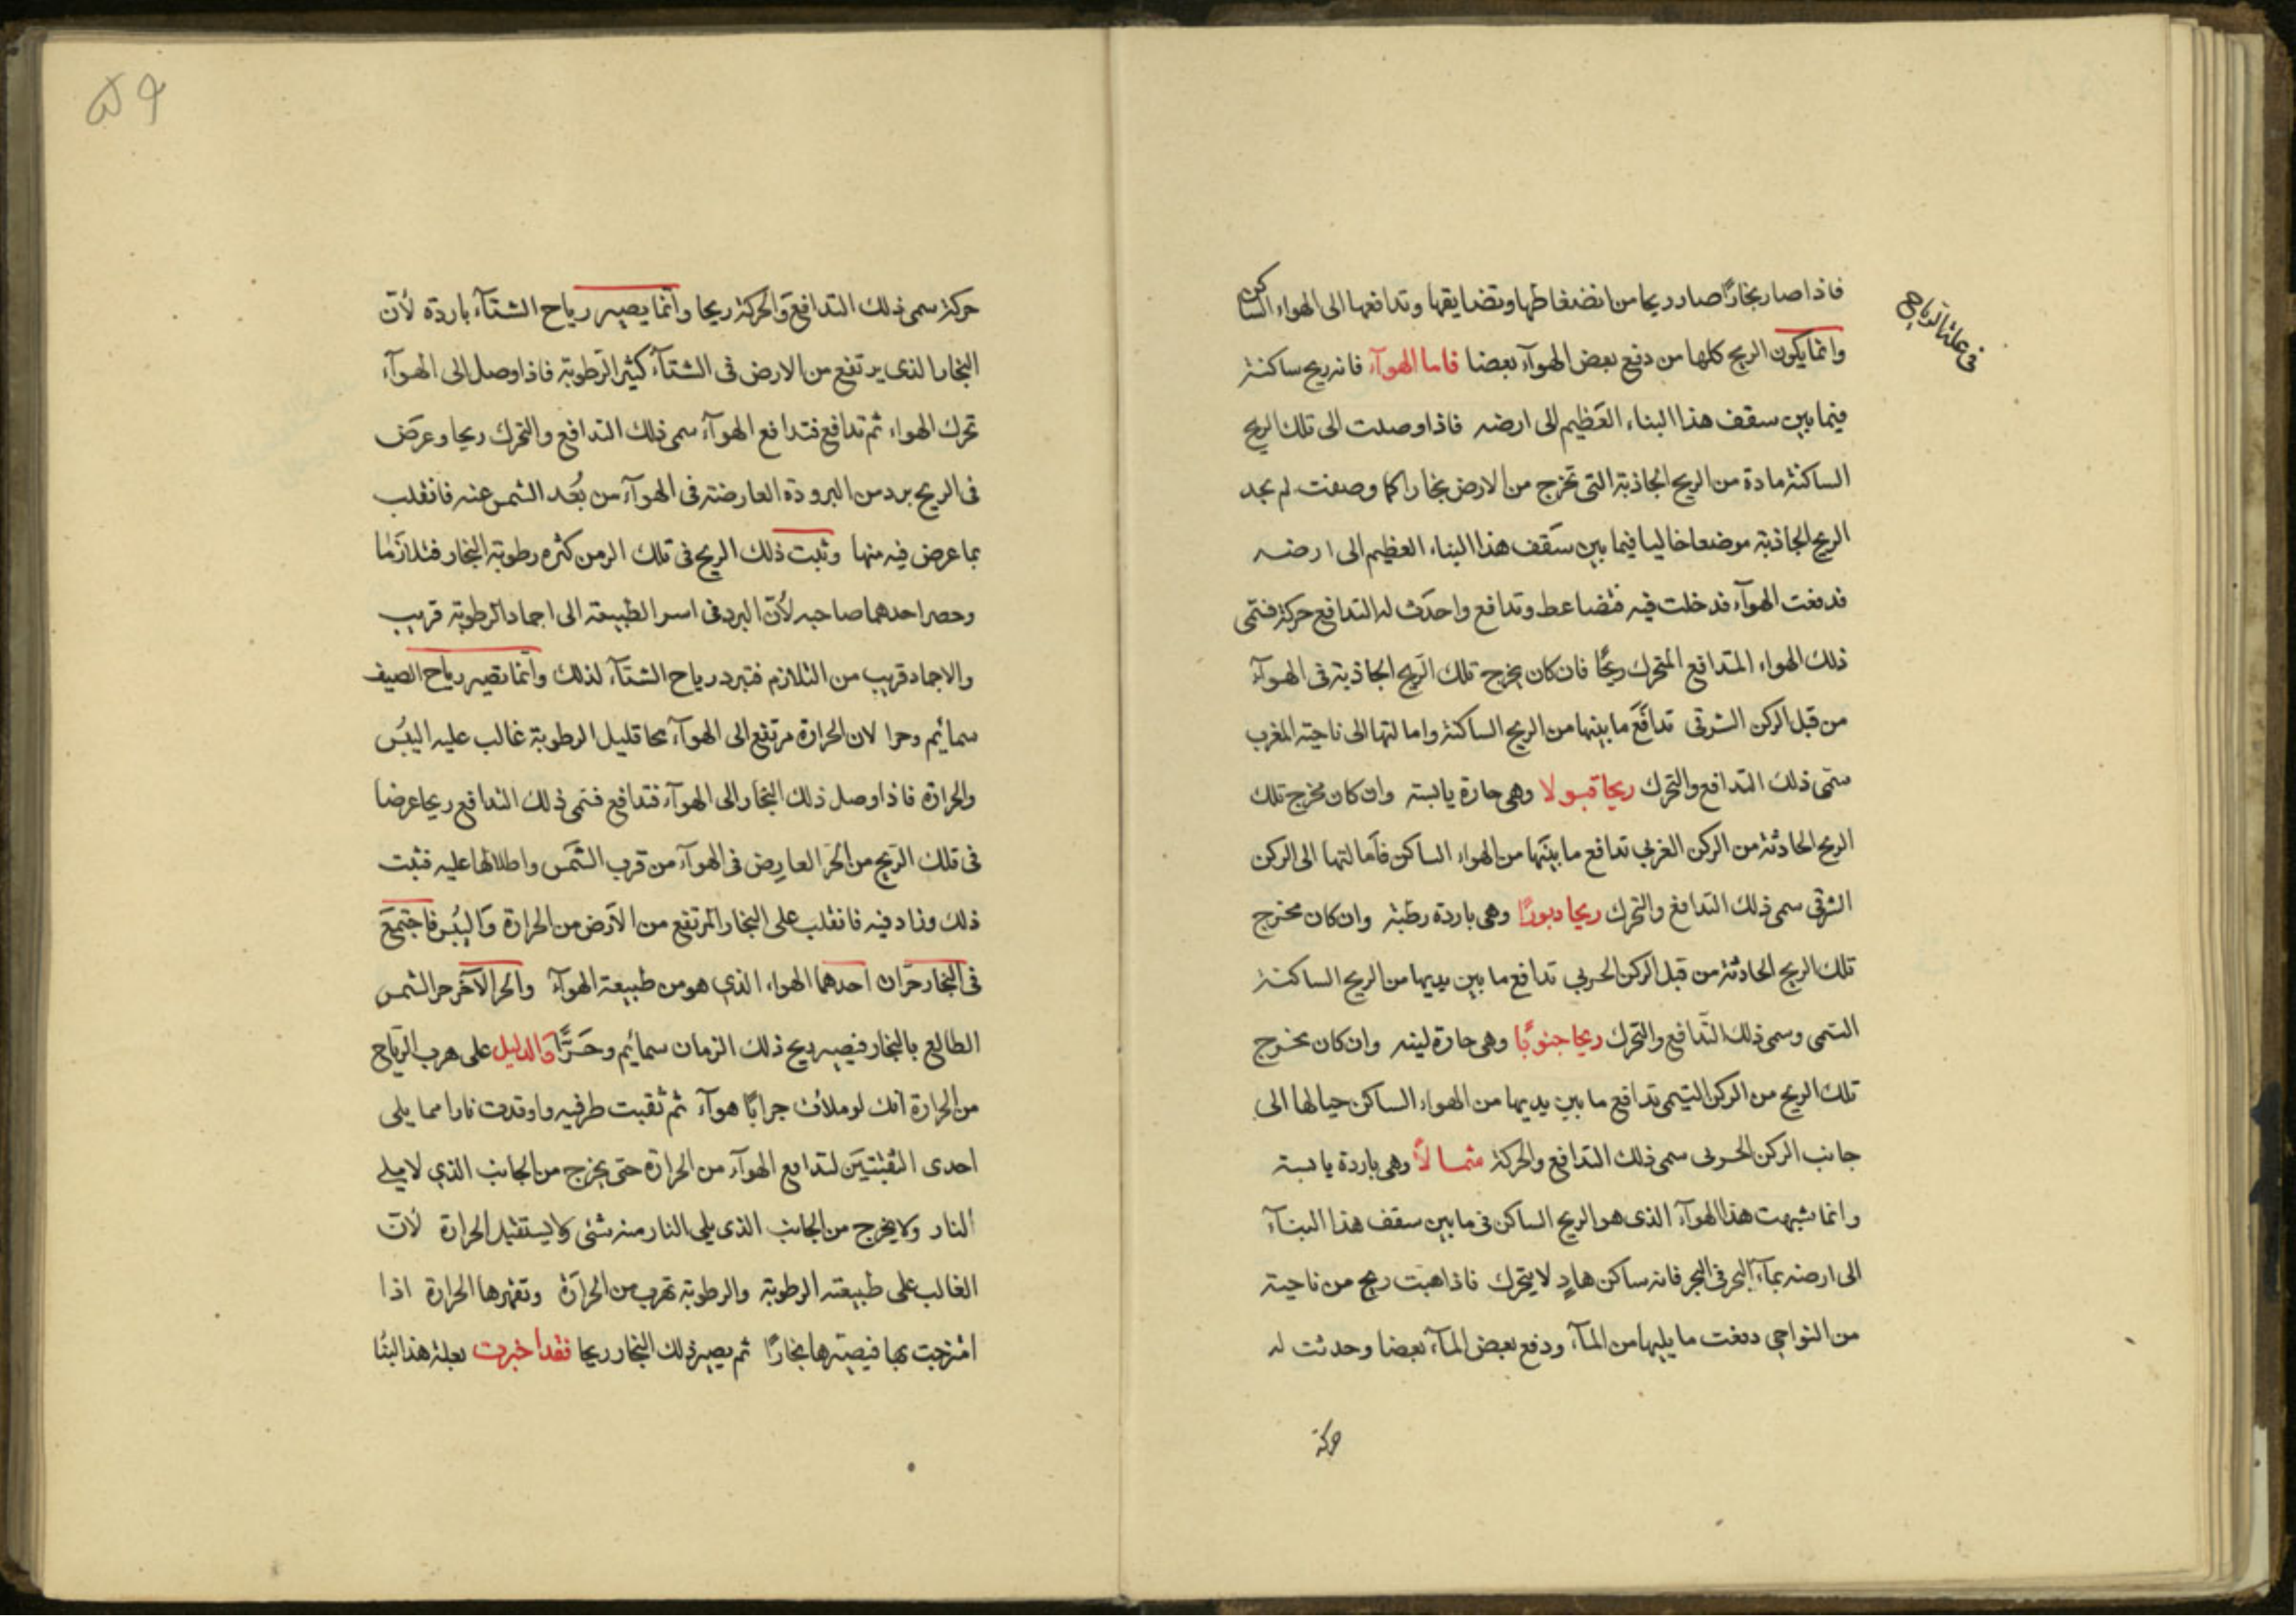 فى علة الرياح
فاذا صار بخارًا صار ريحا من انضغاطها وتضايقها وتدافعها الى الهواء الساكن
وانما يكون الريح كلها من دفع بعض الهوآء بعضا فاما الهوآء فانه ريح ساكنة
فيما بين سقف هذا البناء العَظيم الى ارضه فاذا وصلت الى تلك الريح
الساكنة مادة من الريح الجاذبة التى تخرج من الارض بخارا كما وصفت لم تجد
الريح الجاذبة موضعا خاليا فيما بين سَقف هذا البناء العظيم الى ارضه
فدفعت الهوآء فدخلت فيه فتضاعط وتدافع واحدَث له التدافع حركة فتمى
ذلك الهواء المتدافع المتحرك ريحًا فان كان يخرج تلك الرَيح الجاذبة فى الهوآء
من قبل الركن الشرقى تدافَعَ ما بينها من الريح الساكنة وامالتها الى ناحية المغرب
سمّى ذلك التدافع والتحرك ريحا قبولا وهى حارة يابسة وان كان مخرج تلك
الريح الحادثة من الركن الغربى تدافع ما بينَها من الهواء الساكن فأمالتها الى الركن
الشرقى سمى ذلك التدافع والتحرك ريحا دبورًا وهى باردة رطبة وان كان مخرج
تلك الريح الحادثة من قبل الركن الحربي تدافع ما بين يديها من الريح الساكنة
التمى وسمى ذلك التّدافع والتحرك ريحا جنوبًا وهى حارة لينه وان كان مخرج
تلك الريح من الركن التيمى تدافع ما بين يديها من الهواء الساكن حيالها الى
جانب الركن الحربى سمى ذلك التدافع والحركة شمالاً وهى باردة يابسة
وانما شبهت هذا الهوآء الذى هو الريح الساكن فى ما بين سقف هذا البنآء
الى ارضه بمآء البحر فى البحر فانه ساكن هادٍ لا يتحرك فاذا هبت ريح من ناحية
من النواحى دفعت ما يليها من المآء ودفع بعض المآء بعضا وحدثت له
حركة
٥٩
حركة سمى ذلك التدافع وَالحركة ريحا وانما يصير رياح الشتآء باردة لأن
البخار الذى يرتفع من الارض فى الشتآء كثير الرَطوبة فاذا وصل الى الهوآء
تحرك الهواء ثم تدافع فتدافع الهوآء سمى ذلك التدافع والتحرك ريحا وعرَض
فى الريح برد من البرودة العارضة فى الهوآء من بُعد الشمس عنه فانقلب
بما عرض فيه منها وثبت ذلك الريح فى تلك الزمن كثره رطوبة البخار فتلازَما
وحصر احدهما صاحبه لأن البرد فى اسر الطبيعة الى اجماد الرطوبة قريب
والاجماد قريب من التلازم فتبرد رياح الشتآء لذلك وانما تصير رياح الصيف
سمائم وحرا لان الحرارة مرتفع الى الهوآء محا قليل الرطوبة غالب عليه اليبُس
والحرارة فاذا وصل ذلك البخار الى الهوآء فتدافع فتمى ذلك التدافع ريحا عرضا
فى تلك الرَيح من الحَر العارِض فى الهوآء من قرب الشَمس واطلالها عليه فثبت
ذلك وزاد فيه فانقلب على البخار المرتفع من الأرض من الحرارة وَاليبُس فاجتمَعَ
فى البخار حَرّان احدهما الهواء الذي هو من طبيعة الهوآء والحر الآخر حر الشمس
الطالع بالبخار فيصير ريح ذلك الزمان سمائم وحَرًّا وَالدليل على هرب الرَياح
من الحرارة انك لو ملأت جرابًا هوآء ثم ثقبت طرفيه واوقدت نارا مما يلى
احدى الثقبتيَن لتدافع الهوآء من الحرارة حتى يخرج من الجانب الذي لا يلى
النار ولا يخرج من الجانب الذى يلى النار منه شئى ولا يستقبل الحرارة لأن
الغالب على طبيعته الرطوبة والرطوبة تهرب من الحرارَة وتقهرها الحرارة اذا
امتزجت بها فيصيّرها بخارًا ثم يصير ذلك البخار ريحا فقد اخبرت بعلة هذا البنُا